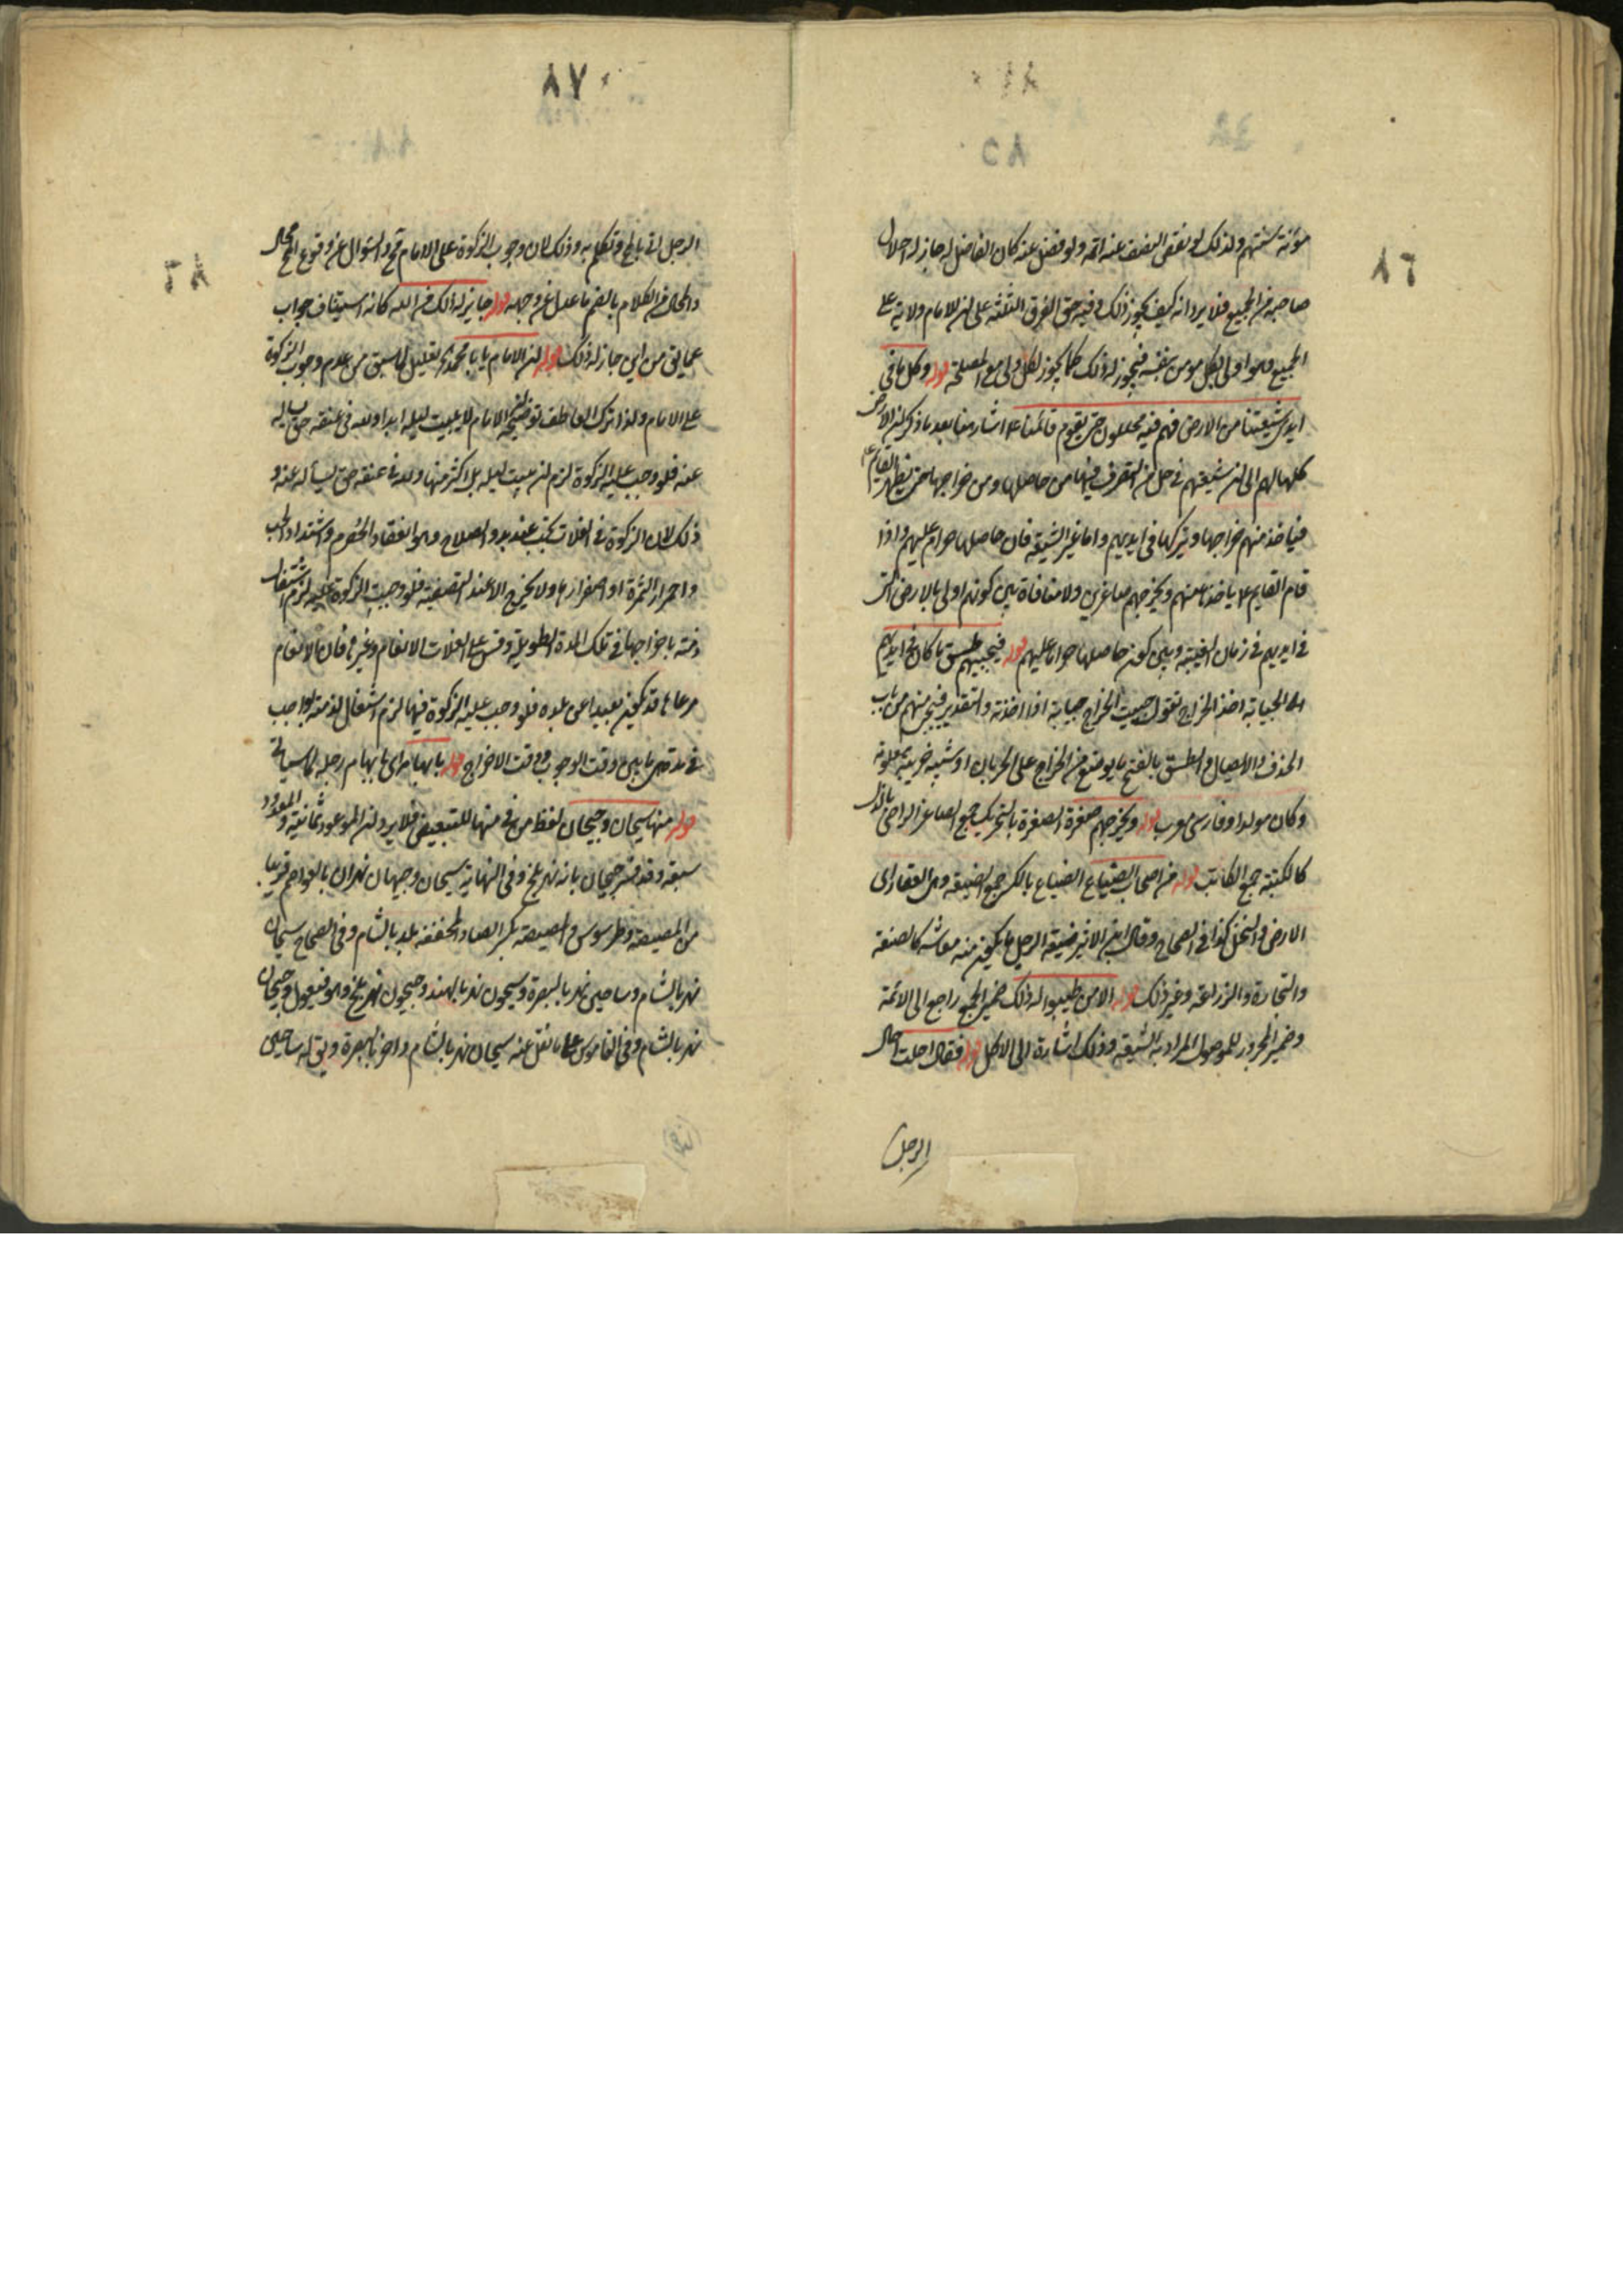 ٨٦
مؤنة سنتهم ولذلك لو نقص النصف عنه اتمه ولو فضل عنه كان الفاضل له جاز له احلال
صاحبه من الجميع فلا يرد انه كيف يجوز ذلك وفيه حق الفرق الثلثة على ان للامام ولاية على
الجميع وهو اولى بكل مومن بنفسه فيجوز له ذلك كما يجوز لكل ولي مع المصلحة قوله وكل ما في
ايدي شيعتنا من الارض فهم فيه محللون حتى يقوم قائمنا ع اشار هنا بعد ما ذكر ان الارض
كلها لهم الى ان شيعتهم في حل من التصرف فيها من حاصلها ومن خراجها حتى يظهر القايم ع
فياخذ منهم خراجها ويتركها في ايديهم واما غير الشيعة فان حاصلها حرام عليهم واذا
قام القايم ع ياخذها منهم ويخرجهم صاغرين ولا منافاة بين كونهم اولى بالارض التي
في ايديهم في زمان الغيبة وبين كون حاصلها حراما عليهم قوله فيجبيهم طسق ما كان في ايديهم
الجباية اخذ الخراج تقول جبيت الخراج جباية اذا اخذته والتقدير فيجبي منهم من باب
الحذف والايصال والطسق بالفتح ما يوضع من الخراج على الجربان او شبه ضريبة معلومة
وكان مولدا وفارسي معرب قوله ويخرجهم صغرة الصغرة بالتحريك جمع الصاغر الراضي بالذل
كالكتبة جمع الكاتب قوله من اصحاب الضياع الضياع بالكسر جمع الضيعة وهي العقار اي
الارض والنخل كذا في الصحاح وقال ابن الاثير ضيعة الرجل ما يكون منه معاشه كالصنعة
والتجارة والزراعة وغير ذلك قوله الا من طيبوا له ذلك ضمير الجمع راجع الى الائمة
وضمير المجرور للموصول المراد به الشيعة وذلك اشارة الى الاكل قوله فقال احلت
الرجل
٨٧
الرجل اتى بالمح وتكلم به وذلك لان وجوب الزكوة على الامام مح والسؤال عن وقوع المح محال
والمحال من الكلام بالضم ما عدل عن وجهه قوله جايز له ذلك من الله كانه استيناف جواب
عما يق من اين جاز له ذلك قوله ان الامام يا با محمد تعليل لما سبق من عدم وجوب الزكوة
على الامام ولذا ترك العاطف توضيحه ان الامام لا يبيت ليلة ابدا ولله في عنقه حق يساله
عنه فلو وجب عليه الزكوة لزم ان يبيت ليلة بل اكثر منها ولله في عنقه حق يساله عنه و
ذلك لان الزكوة في الغلات تجب عند بدو الصلاح وهو انعقاد الحصرم واشتداد الحب
واحمرار الثمرة او اصفرارها ولا يخرج الا عند التصفية فلو وجبت الزكوة عليه لزم اشتغال
ذمته باخراجها في تلك المدة الطويلة وقس على الغلات الانعام وغيرها فان الانعام
مرعاها قد يكون بعيدا عن بلده فلو وجب عليه الزكوة فيها لزم اشتغال الذمة بواجب
في مدة ما بين وقت الوجوب ووقت الاخراج قوله بابهامه اي بابهام رجله كما سياتي
قوله منها سيحان وجيحان لفظ من في منها للتبعيض فلا يرد ان الموعود ثمانية والمعدود
سبعة وقد فسر جيحان بانه نهر بلخ وفي النهاية سيحان وجيحان نهران بالعواصم قريبا
من المصيصة وطرسوس والمصيصة بكسر الصاد المخففة بلد بالشام وفي الصحاح سيحان
نهر بالشام وساحين نهر بالبصرة وسيحون نهر بالهند وجيحون نهر بلخ وهو فيعول وجيحان
نهر بالشام وفي القاموس على ما نقل عنه سيحان نهر بالشام واخر بالبصرة ويق له ساحين